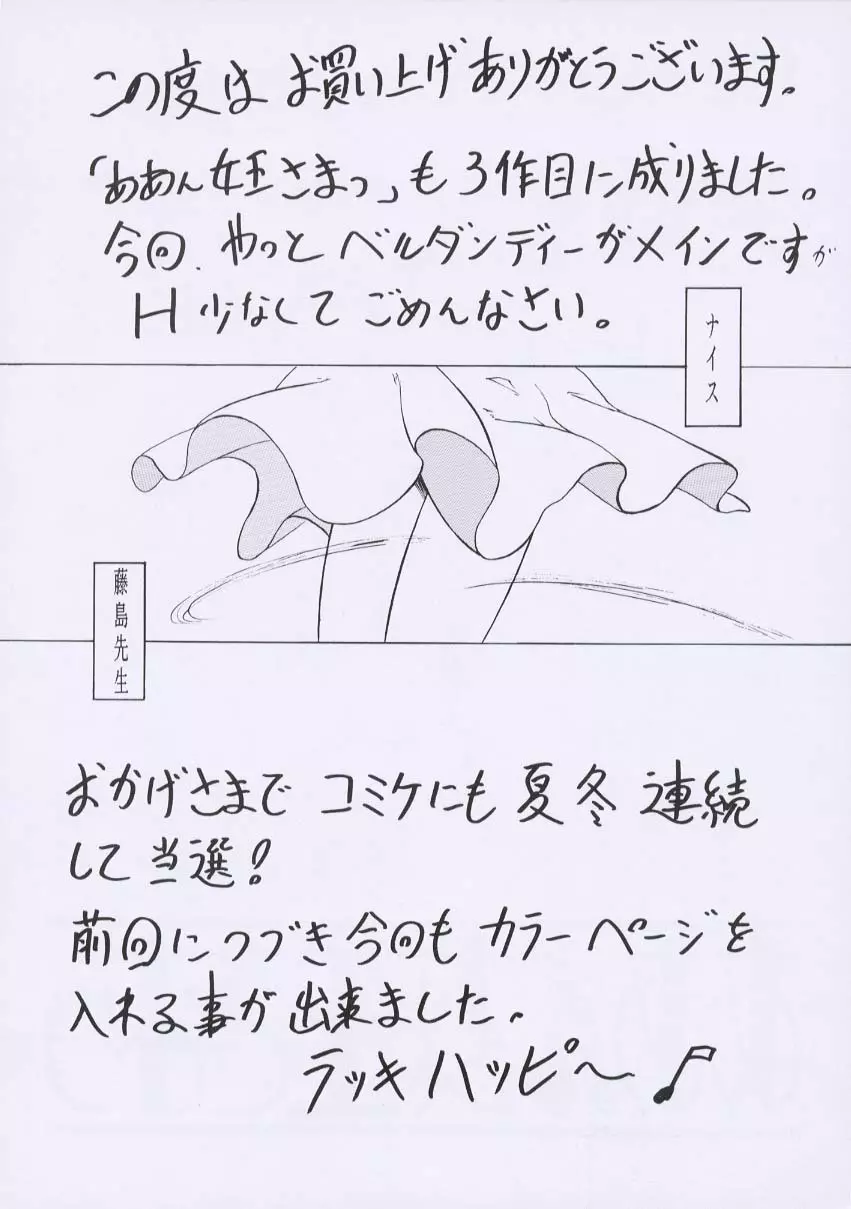 この度は お買い上げ ありがとうございます。
「ああん女王さまっ」も 3作目に成りました。
今回、やっと ベルダンディーがメインですが
H 少なくて ごめんなさい。
ナイス
藤島先生
おかげさまで コミケにも 夏冬 連続
して当選!
前回につづき今回も カラーページを
入れる事が 出来ました。
ラッキ ハッピ〜♪